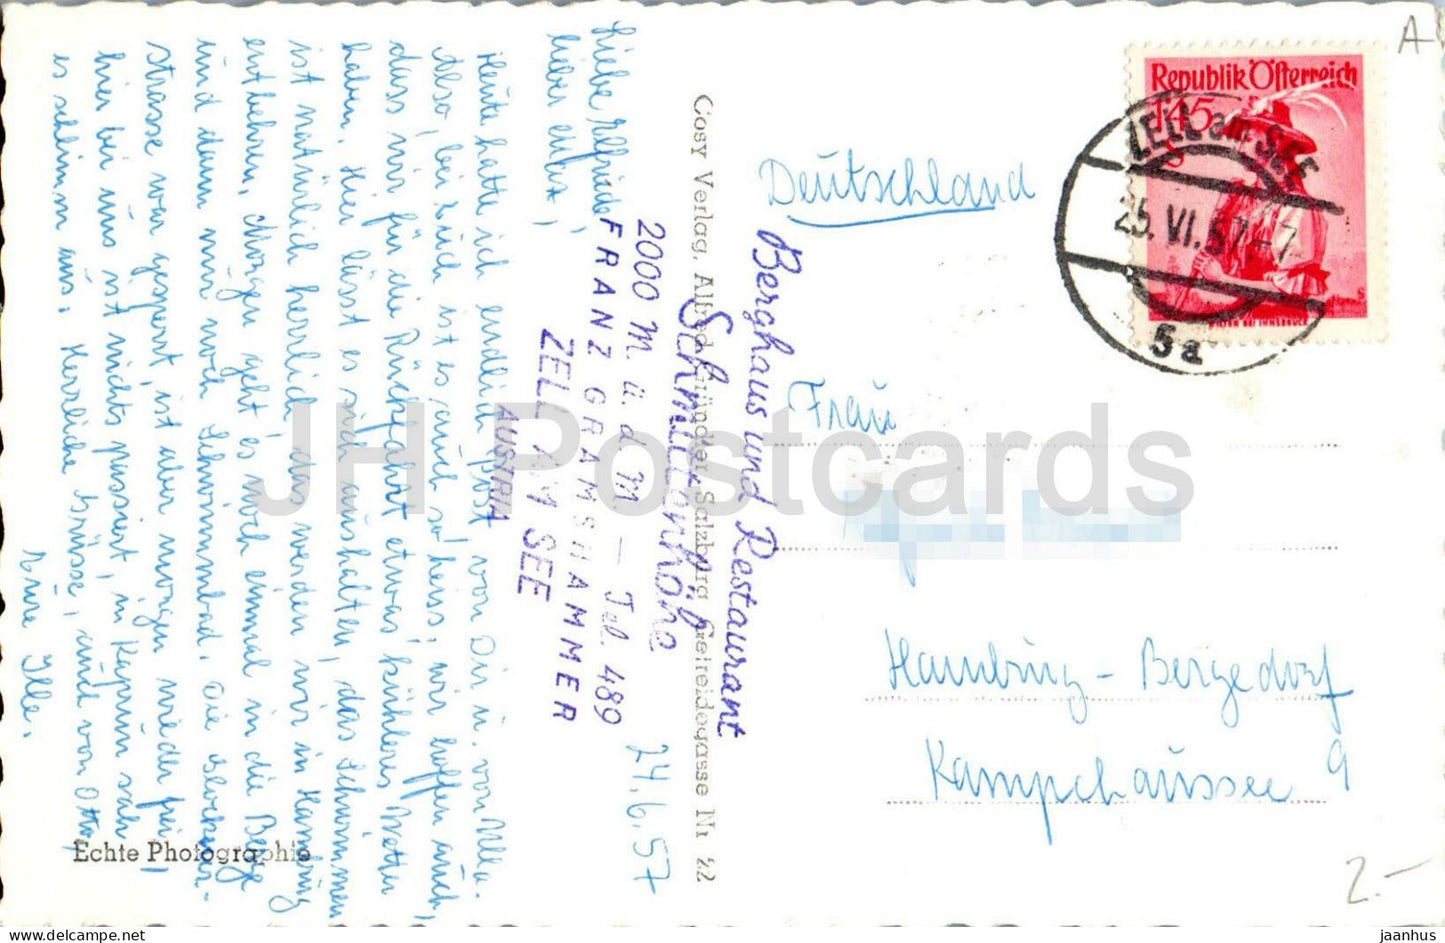 Liebe Elfriede,
lieber Alfred,
24.6.57
Heute hatte ich endlich Post von Dir u. von Ulla.
Also, bei Euch ist es auch so heiss; wir hoffen auch,
dass wir für die Rückfahrt etwas kühleres Wetter
haben. Hier lässt es sich aushalten, das Schwimmen
ist natürlich herrlich, das werden wir in Hamburg
entbehren. Morgen geht es noch einmal in die Berge
und dann nur noch Schwimmbad. Die
strasse war gesperrt, ist aber morgen wieder frei,
hier bei uns ist nichts passiert, in Kaprun sah
es schlimm aus. Herzliche Grüsse, auch von Otto,
Eure Ille.
Berghaus und Restaurant
Schmittenhöhe
2000 M. ü. d. M. — Tel. 489
FRANZ GRAMSHAMMER
ZELL AM SEE
AUSTRIA
Cosy Verlag, Alfred Gründler Salzburg Getreidegasse Nr 22
Echte Photographie
A
Republik Österreich
1.45
S
ZELL am SEE
25.VI.57-7
5a
Deutschland
Frau
Hamburg - Bergedorf
Kampchaussee 9
2.-
JH Postcards
www.delcampe.net
jaanhus